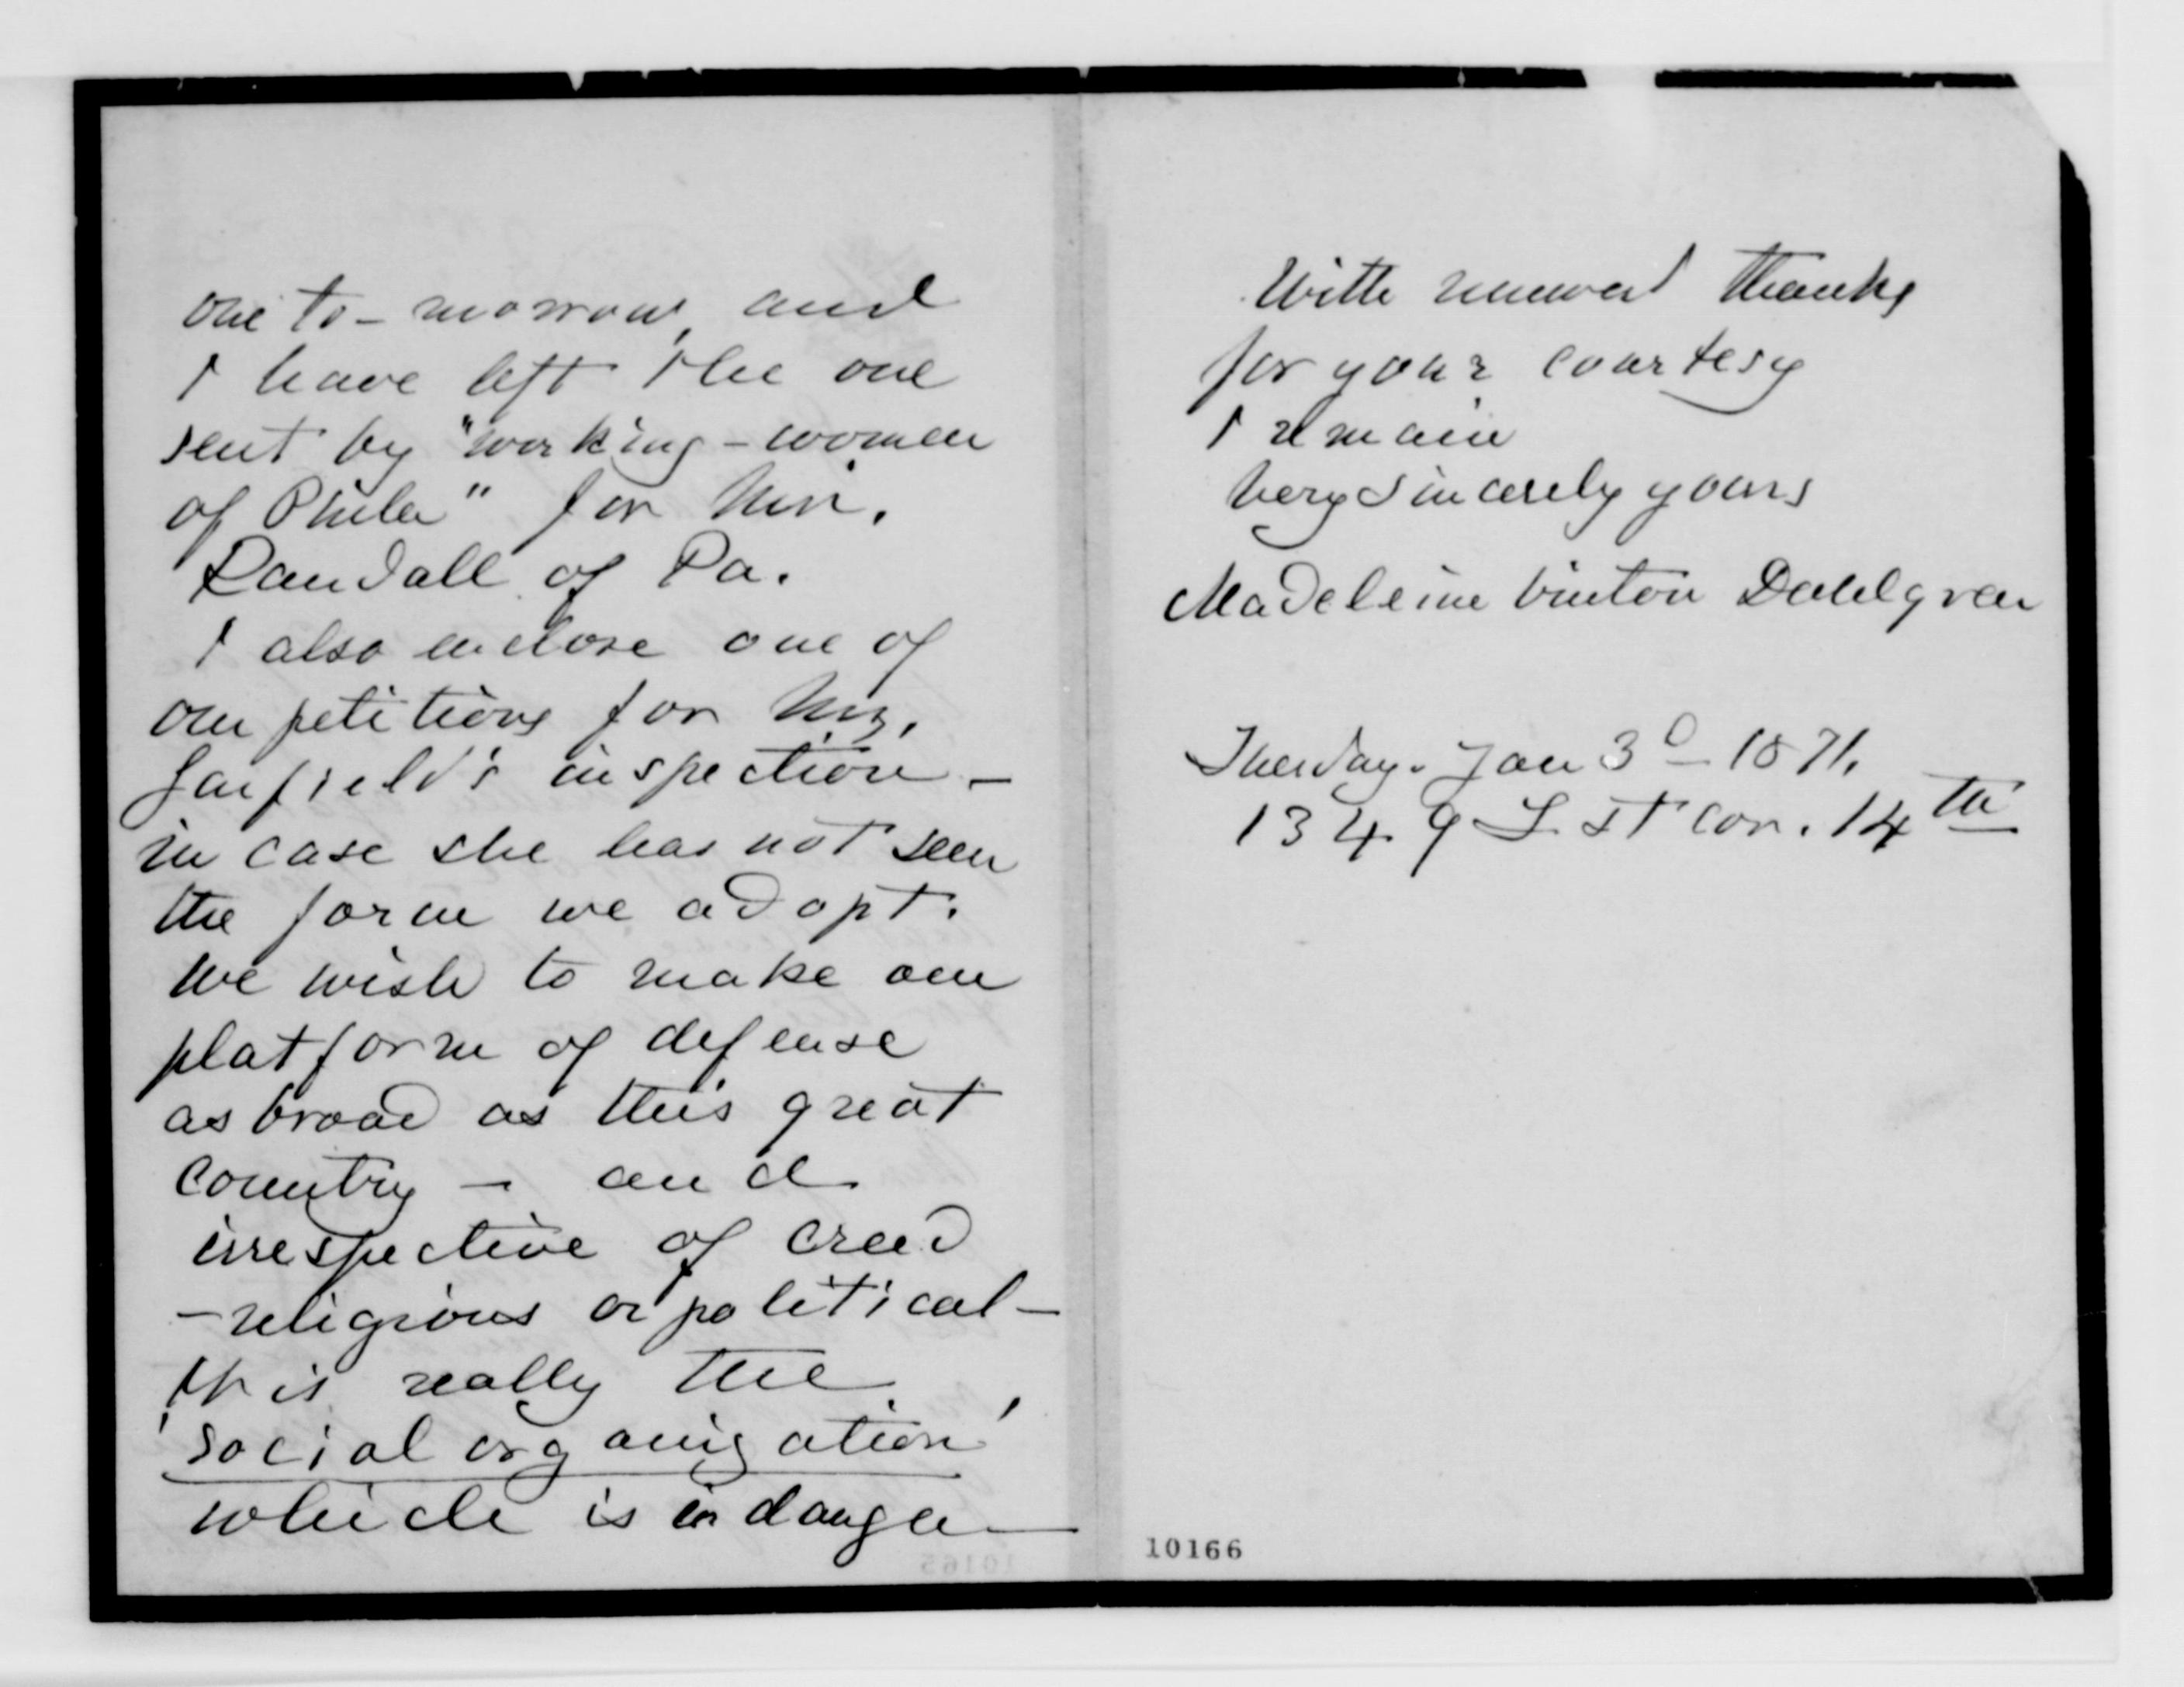 one to-morrow, and
I have left the one
sent by "working-women
of Phila" for Mr.
Randall of Pa.
I also enclose one of
our petitions for Mrs.
Garfield's inspection -
in case she has not seen
the form we adopt.
We wish to make our
platform of defense
as broad as this great
country - and
irrespective of creed
- religious or political -
It is really the
'social organization'
which is in danger —
With renewed thanks
for your courtesy
I remain
Very Sincerely yours
Madeleine Vinton Dahlgren
Tuesday. Jan 3d - 1871.
1349 L St cor. 14th
10166
10165